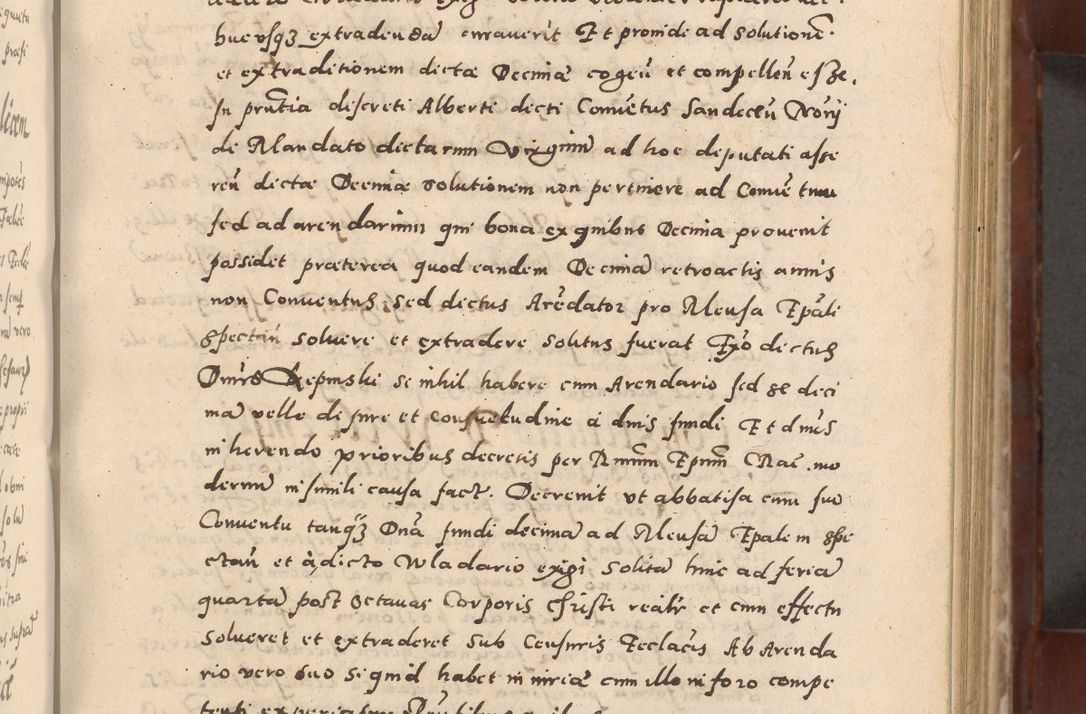 husvsqʒ extradendā curaverit Et proinde ad solutionē
et extraditionem dictæ Decimæ cogeñ et compelleñ esse.
In prntia discreti Alberti dicti Conuētus Sandeceñ Norij
de Mandato dictarum Virginū ad hoc deputati asse
reñ dictæ Decimæ solutionem non pertinere ad Conuētum
sed ad arendarium qui bona ex quibus Decima prouenit
possidet præterea quod eandem Decimā retroactis annis
non Conuentus sed dictus Arēdator pro Mensa Epāli
spectañ soluere et extradere solitus fuerat Exo dictus
Dnūs Rzepinski se nihil habere cum Arendario sed se deci
mā velle de jure et consuetudine à dnis fundi Et dnūs
inherendo prioribus decretis per Rmūm Epūm Racē mo
dernū in simili causa fact. Decreuit vt abbatissa cum suo
Conuentu tanqʒ Dnā fundi decimā ad Mensā Epalem spe
ctañ et à dicto Wladario exigi solitā hinc ad feriā
quartā post octauas Corporis Christi realr et cum effectu
solueret et extraderet sub Censuris Ecclaēis Ab Arenda
rio vero suo si quid habet iniuriæ cum illo in foro compe